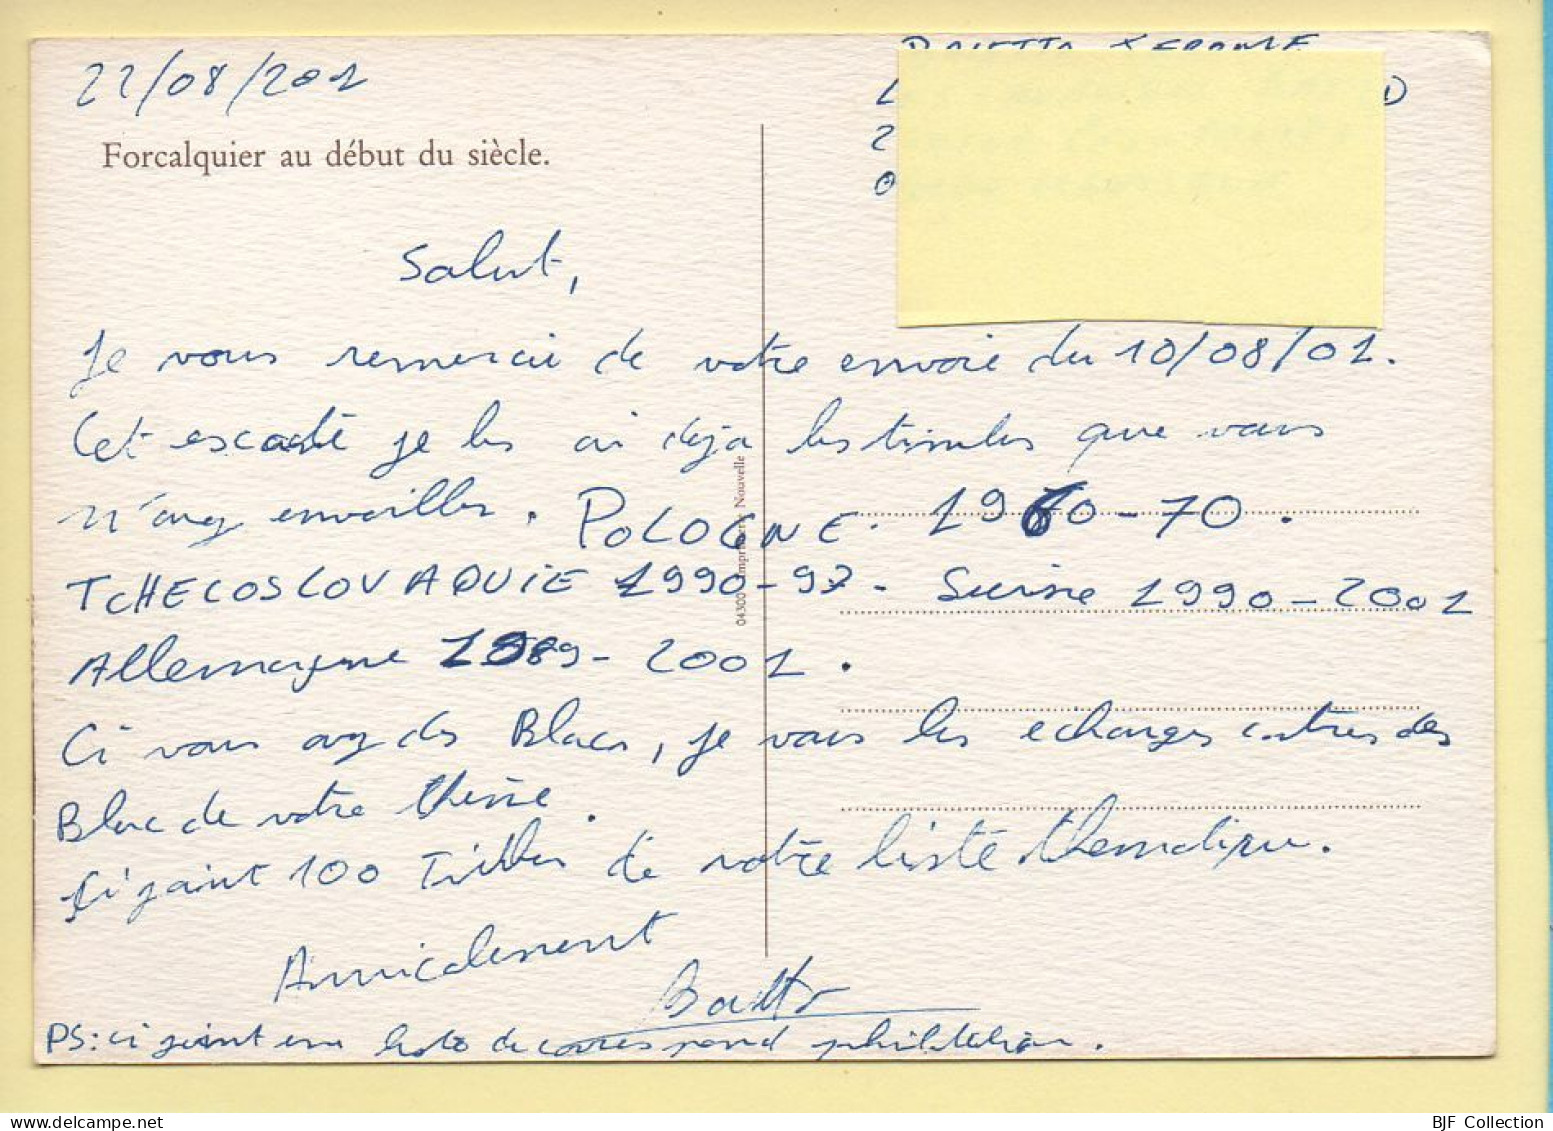 22/08/201
Forcalquier au début du siècle.
Salut,
Je vous remercie de votre envoie du 10/08/01.
Cet je les ai deja les timbles que vous
n'avez envoiller. POLOGNE. 1960-70.
TCHECOSLOVAQUIE 1990-97 - Suisse 1990-2001
Allemagne 1989-2001.
Ci vous avez des Blocs, je vous les echanges contres des
Bloc de votre thème.
Ci jaint 100 Timbles de votre liste thematique.
Amicalement
PS: ci jaint une liste de correspond philatélian.
04300 Imprimerie Nouvelle
BJF Collection